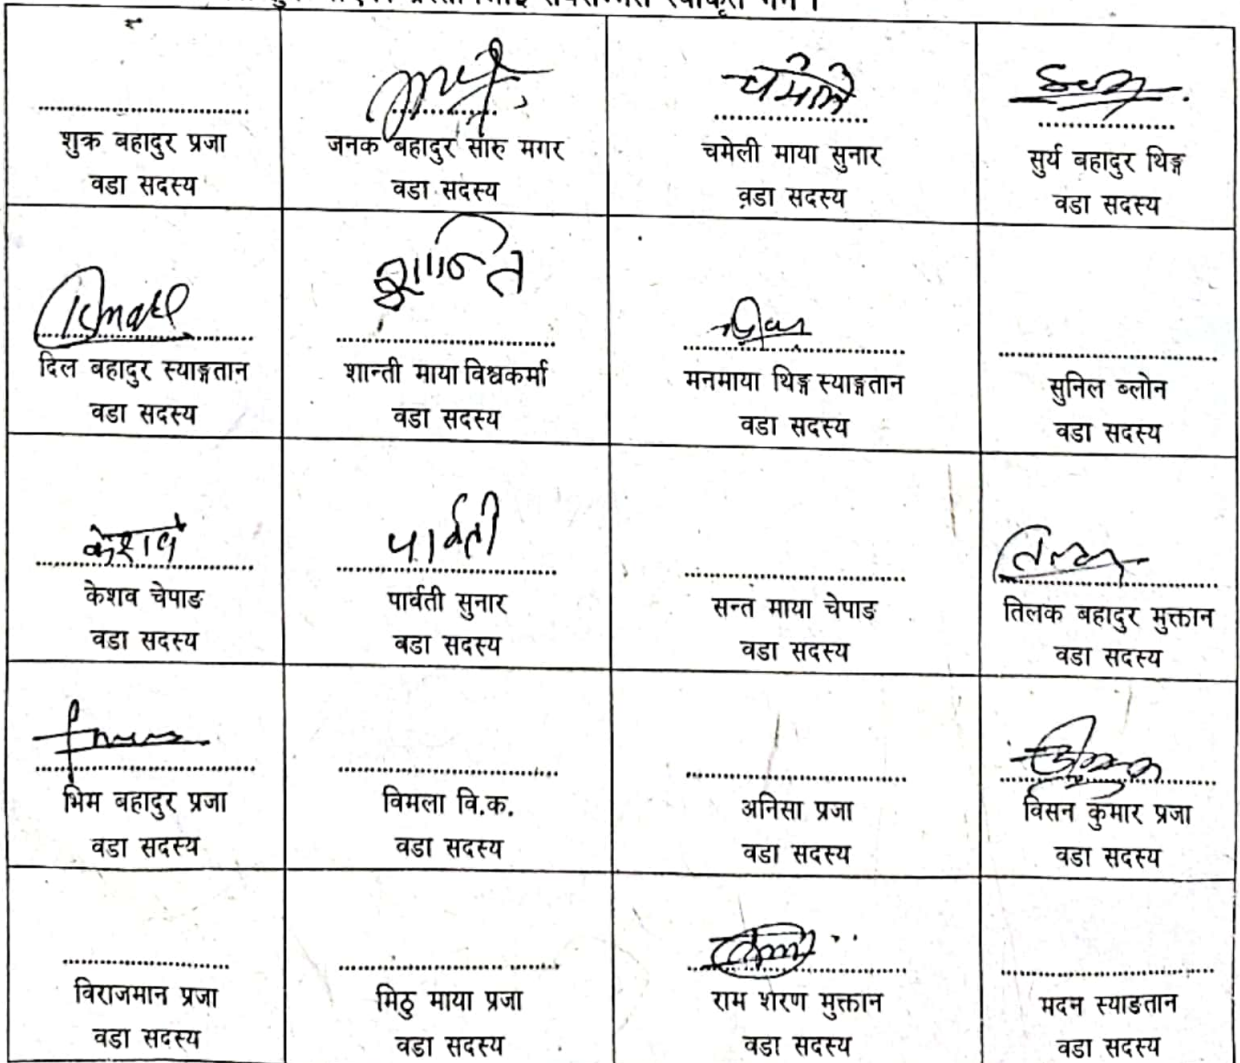 शुक्र बहादुर प्रजा
वडा सदस्य
जनक बहादुर सारु मगर
वडा सदस्य
चमेली
चमेली माया सुनार
वडा सदस्य
सुर्य बहादुर थिङ्ग
वडा सदस्य
दिल बहादुर स्याङ्गतान
वडा सदस्य
शान्ति
शान्ती माया विश्वकर्मा
वडा सदस्य
मनमाया थिङ्ग स्याङ्गतान
वडा सदस्य
सुनिल ब्लोन
वडा सदस्य
केशव
केशव चेपाङ
वडा सदस्य
पार्वती
पार्वती सुनार
वडा सदस्य
सन्त माया चेपाङ
वडा सदस्य
तिलक बहादुर मुक्तान
वडा सदस्य
भिम बहादुर प्रजा
वडा सदस्य
विमला वि.क.
वडा सदस्य
अनिसा प्रजा
वडा सदस्य
विसन कुमार प्रजा
वडा सदस्य
विराजमान प्रजा
वडा सदस्य
मिठु माया प्रजा
वडा सदस्य
राम शरण मुक्तान
वडा सदस्य
मदन स्याङतान
वडा सदस्य